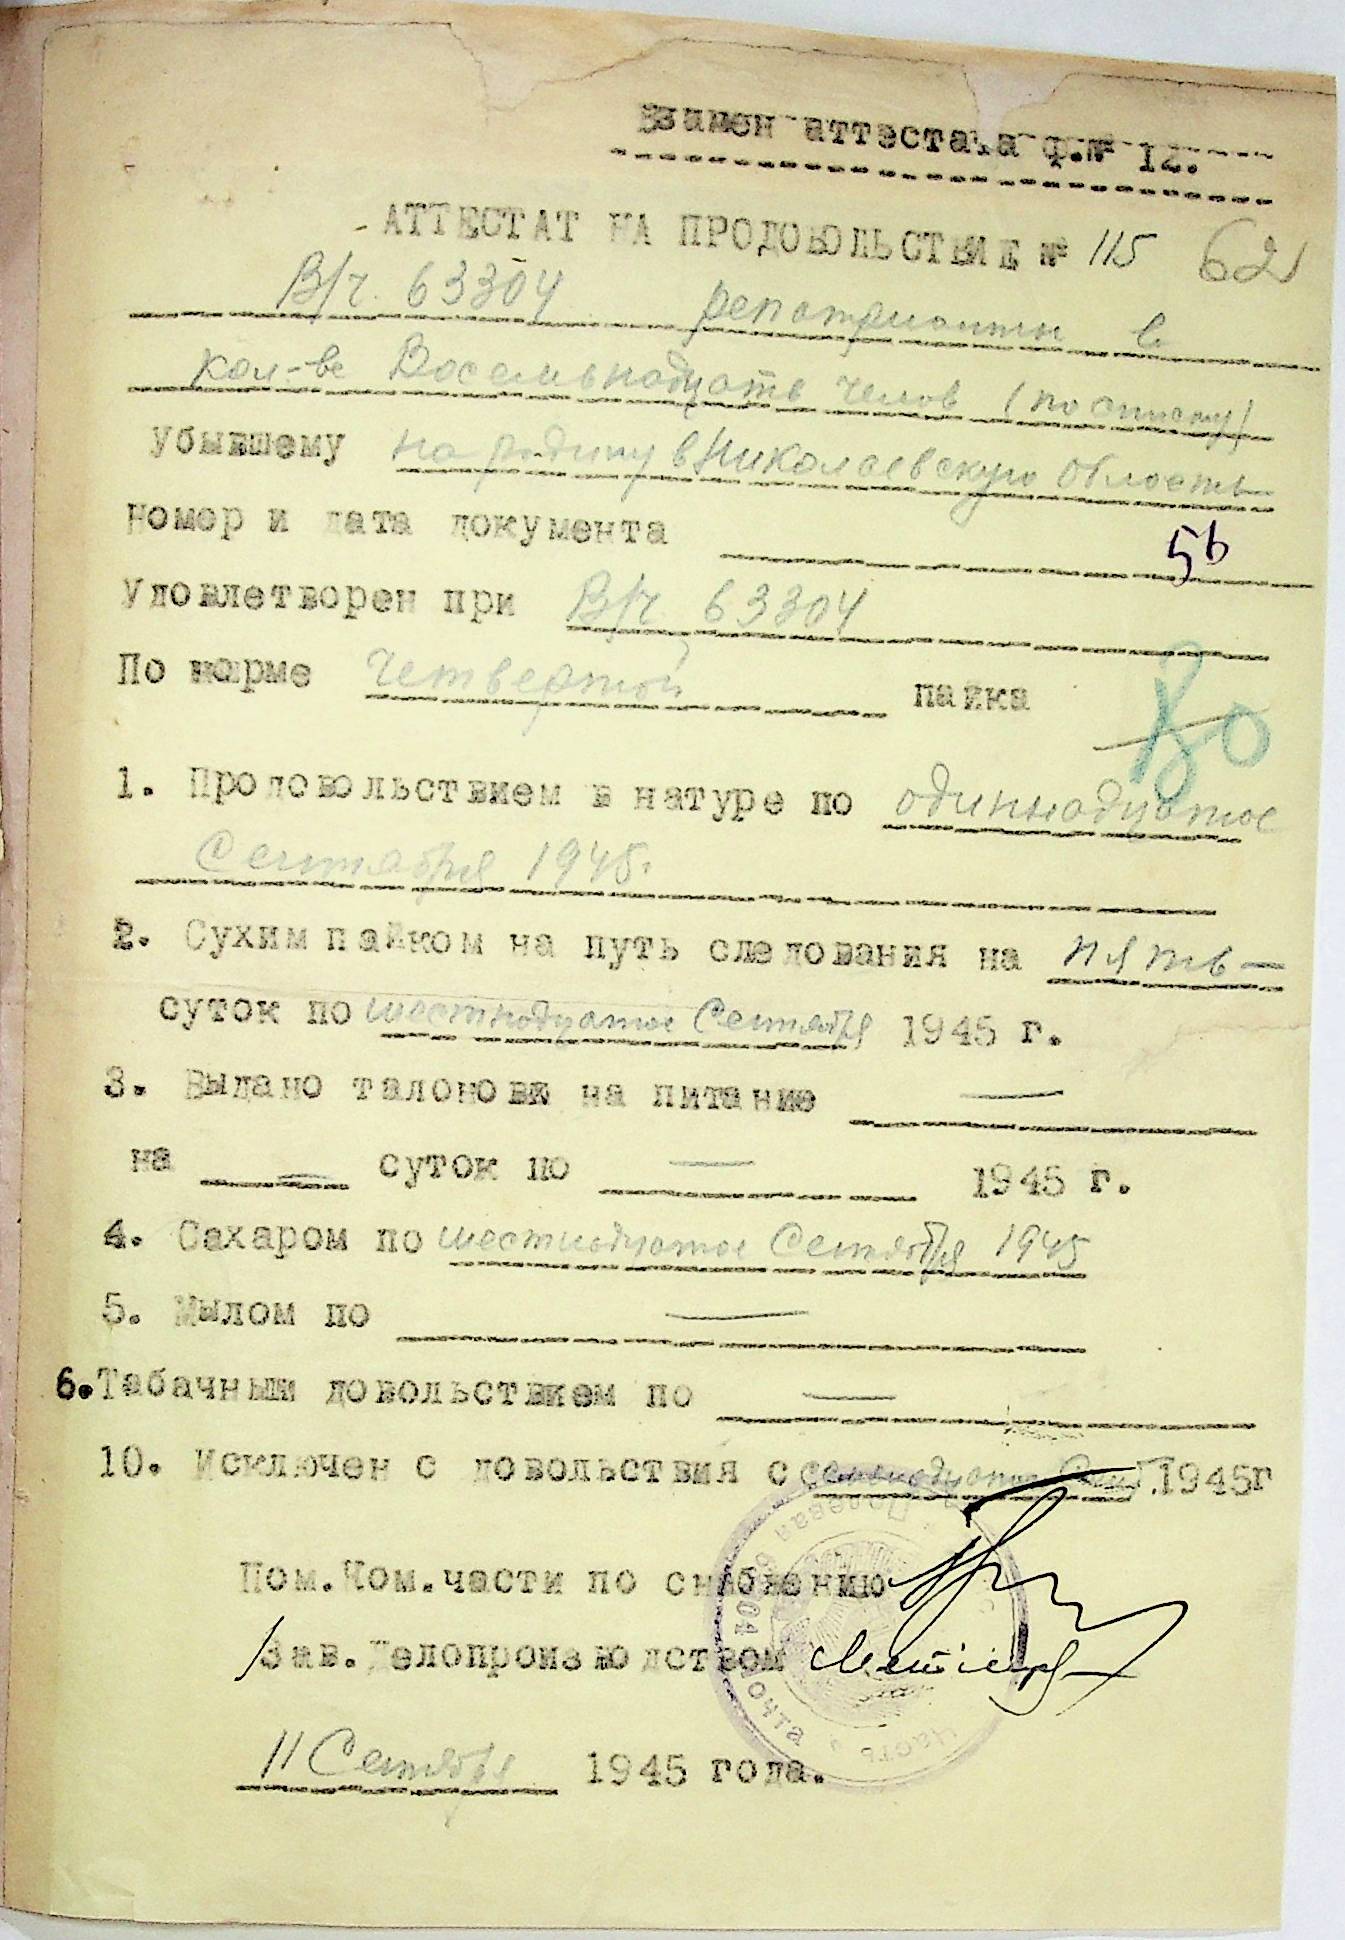 Взамен аттестата ф.№ 12.
АТТЕСТАТ НА ПРОДОВОЛЬСТВИЕ № 115 62
В/ч 63304 репатрианты в
кол-ве Восемьнадцать челов (по списку)
убывшему на родину в Николаевскую область
Номер и дата документа 56
Удовлетворен при В/ч 63304
По норме четвертой пайка
1. Продовольствием в натуре по одиннадцатое
Сентября 1945г.
2. Сухим пайком на путь следования на пять —
суток по шестнадцатое Сентября 1945 г.
3. Выдано талонов на питание —
на — суток по — 1945 г.
4. Сахаром по шестнадцатое Сентября 1945
5. Мылом по —
6. Табачным довольствием по —
10. Исключен с довольствия с семнадцатое Сент. 1945г
Пом.Ком.части по снабжению
/Зав.Делопроизводством
11 Сентября 1945 года.
Полевая почта часть